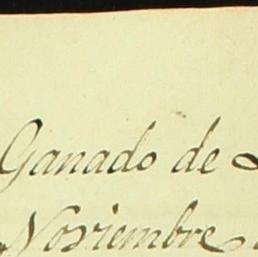 Ganado de
Noviembre